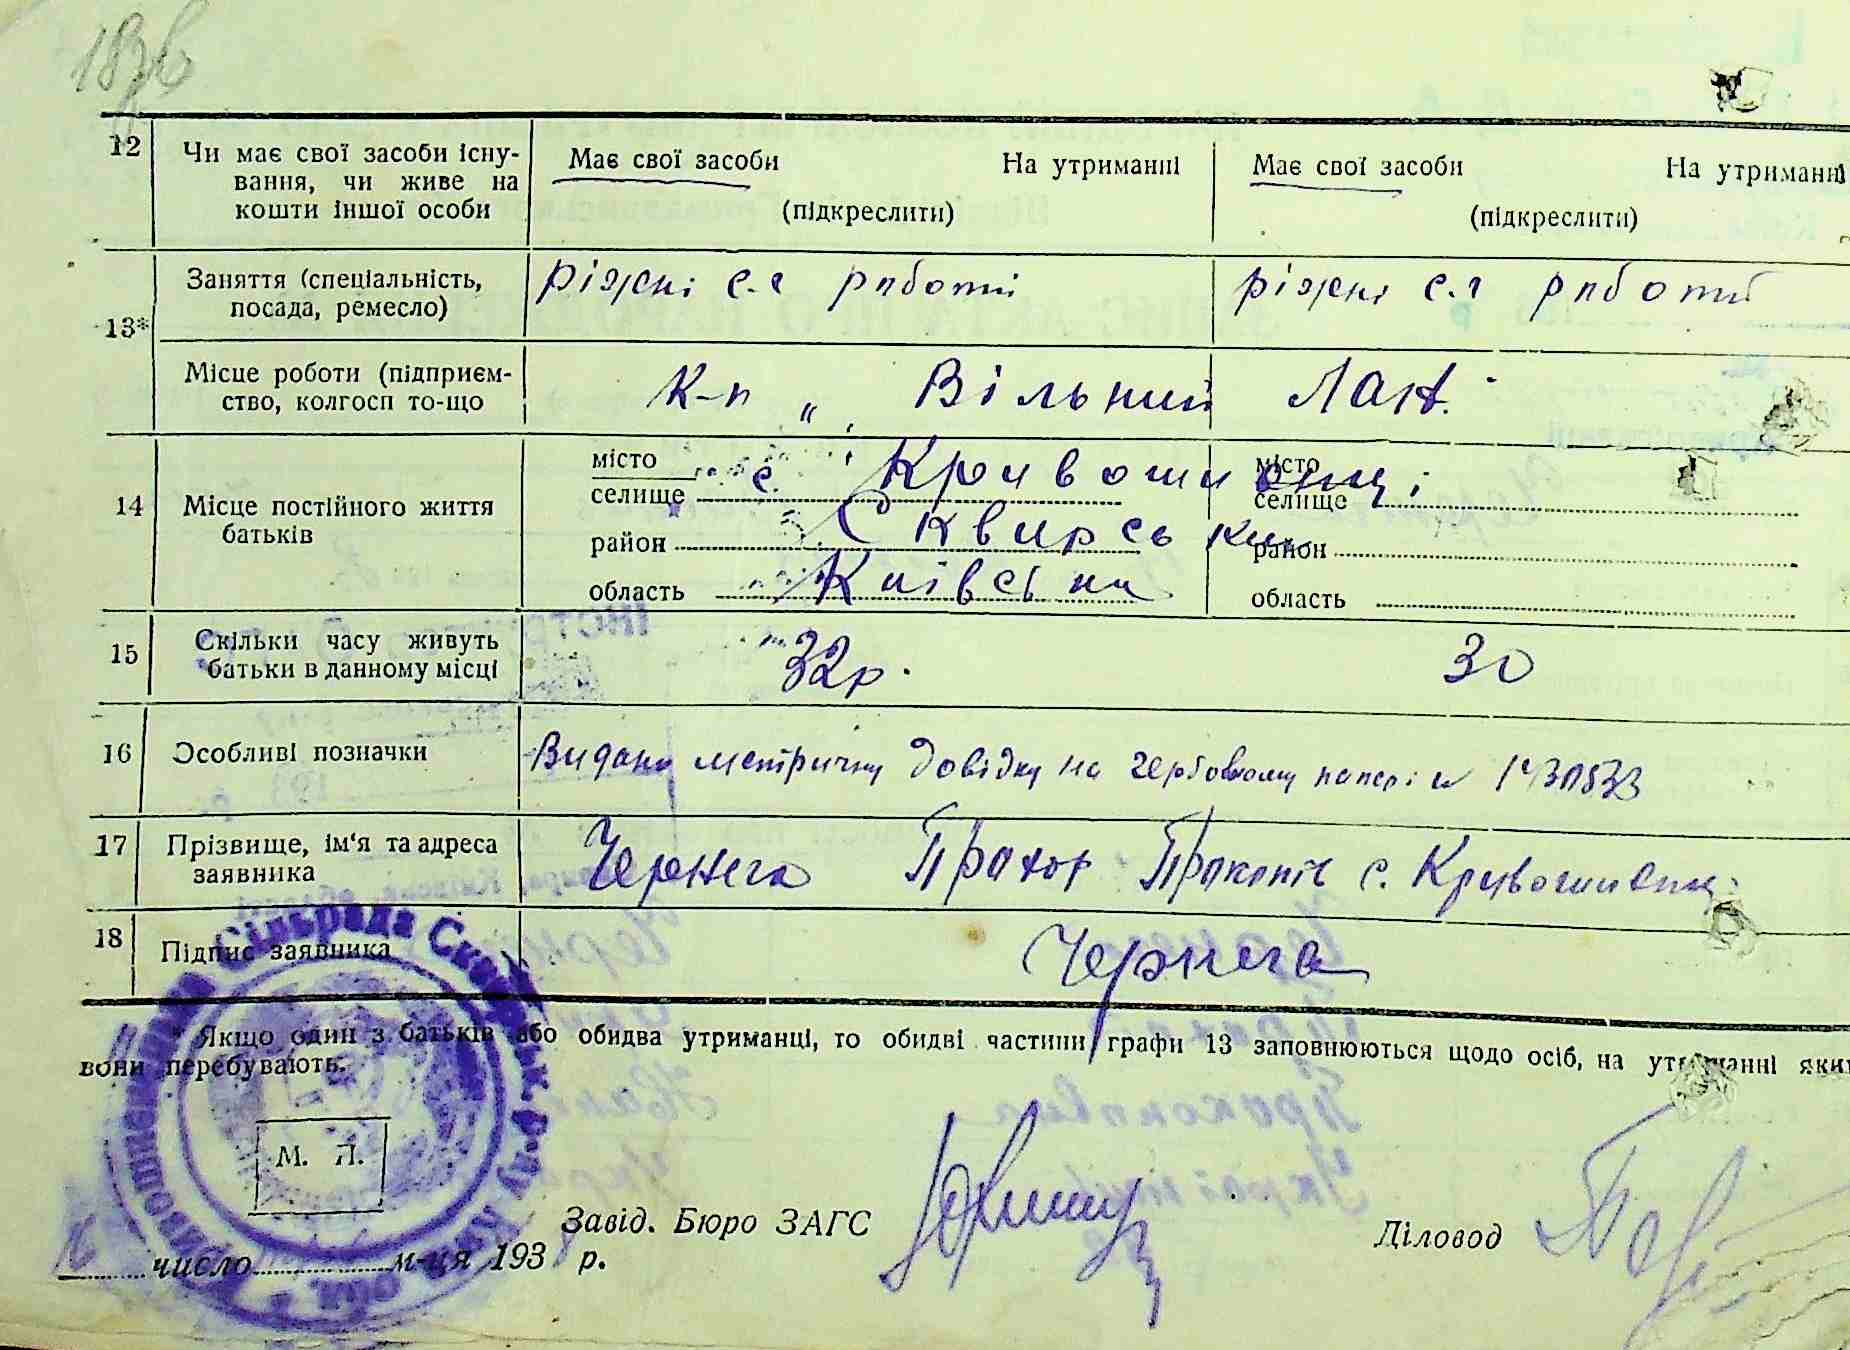 12 Чи має свої засоби існу-
вання, чи живе на
кошти іншої особи
Має свої засоби На утриманні
(підкреслити)
Має свої засоби На утриманні
(підкреслити)
13* Заняття (спеціальність,
посада, ремесло)
ріжні с.г работи
ріжні с.г работи
Місце роботи (підприєм-
ство, колгосп то-що
К-п „ Вільний Лан.
14 Місце постійного життя
батьків
місто
селище с. Кривошиєнці
район Сквирськи
область Київська
місто
селище
район
область
15 Скільки часу живуть
батьки в данному місці
32 р.
30
16 Особливі позначки
Видано метричну довідку на гербовому папері
17 Прізвище, ім'я та адреса
заявника
Чернега Прохор Прокопіч с. Кривошиєнці
18 Підпис заявника
Чернега
* Якщо один з батьків або обидва утриманці, то обидві частини графи 13 заповнюються щодо осіб, на утриманні яки
вони перебувають.
Сільрада Сквирськ. р-ну
М. П.
Завід. Бюро ЗАГС
Діловод
16 число м-ця 1938 р.